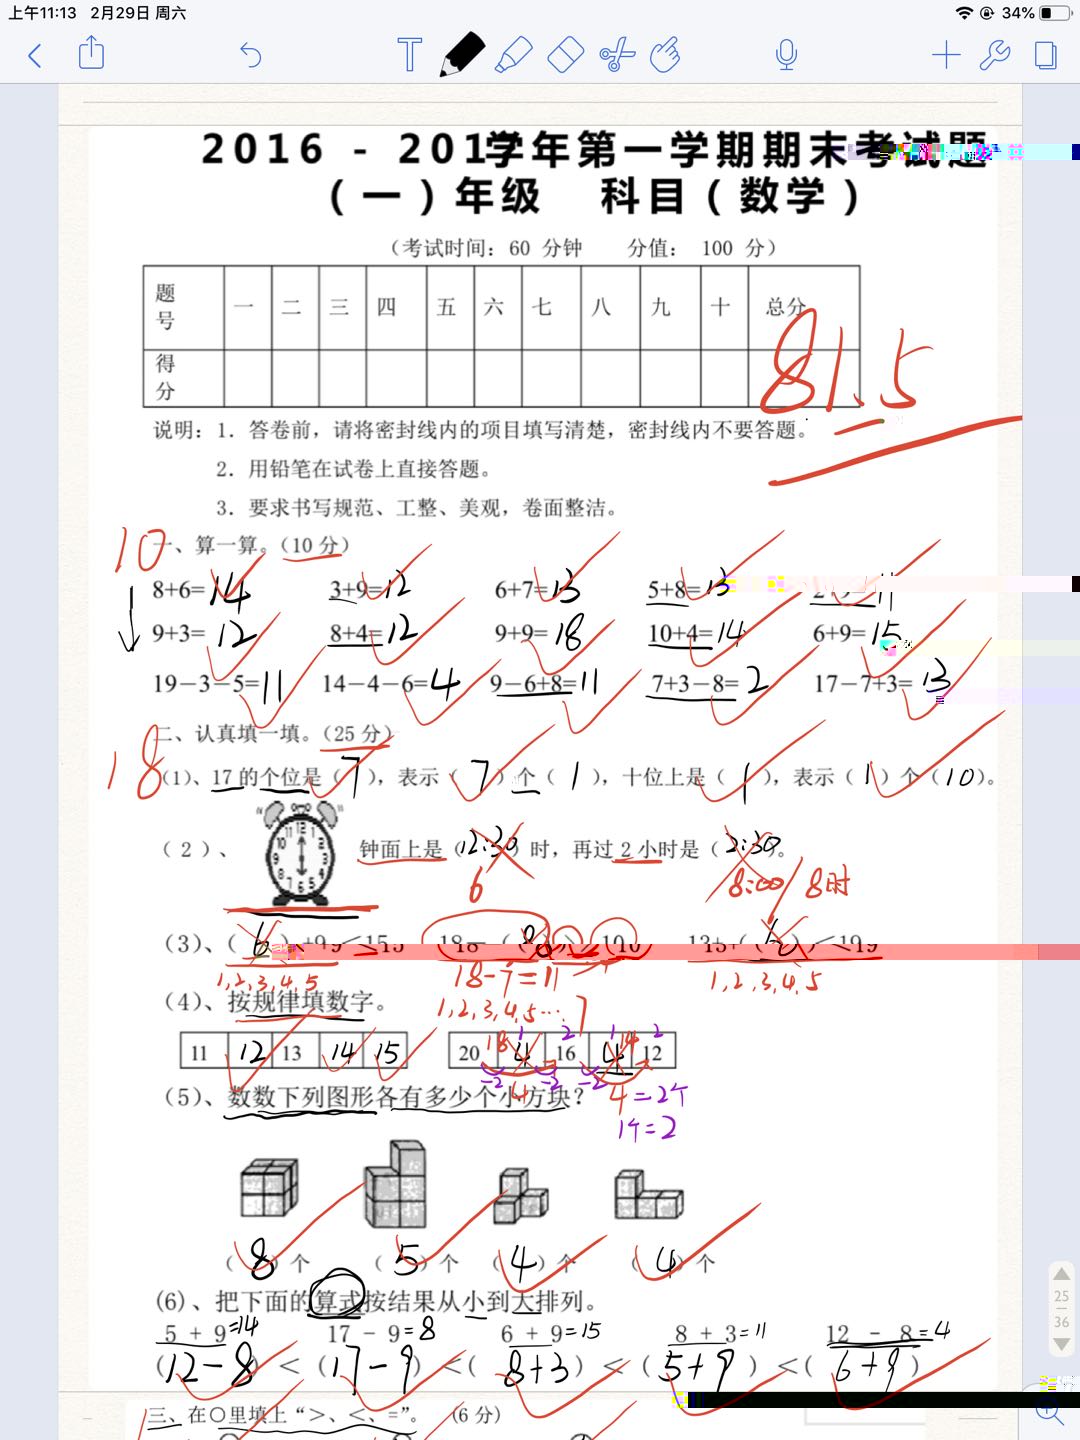 上午11:13 2月29日 周六 34%
2016 - 2017学年第一学期期末考试题
（一）年级 科目（数学）
（考试时间：60 分钟 分值： 100 分）
题号 一 二 三 四 五 六 七 八 九 十 总分
得分
81.5
说明：1．答卷前，请将密封线内的项目填写清楚，密封线内不要答题。
2．用铅笔在试卷上直接答题。
3．要求书写规范、工整、美观，卷面整洁。
10
一、算一算。（10 分）
8+6=14 3+9=12 6+7=13 5+8=13 11
9+3=12 8+4=12 9+9=18 10+4=14 6+9=15
19－3－5=11 14－4－6=4 9－6+8=11 7+3－8=2 17－7+3=13
18
二、认真填一填。（25 分）
（1）、17 的个位是（7），表示（7）个（1），十位上是（1），表示（1）个（10）。
（2）、 钟面上是（12:30）时，再过 2 小时是（2:30。
6 8:00/8时
（3）、（
1,2,3,4,5 18-7=11 1,2,3,4,5
（4）、按规律填数字。 1,2,3,4,5…7
18 1 2 1 14 2
11 12 13 14 15 20 4 16 4 12
-2 -2 -2
4
（5）、数数下列图形各有多少个小方块？ 4=2个
1个=2
（8）个 （5）个 （4）个 （4）个
(6)、把下面的算式按结果从小到大排列。
5 + 9=14 17 - 9=8 6 + 9=15 8 + 3=11 12 - 8=4
(12-8) <(17-9) <(8+3) <(5+9) <(6+9)
三、在○里填上“>、<、=”。 （6 分）
25
36